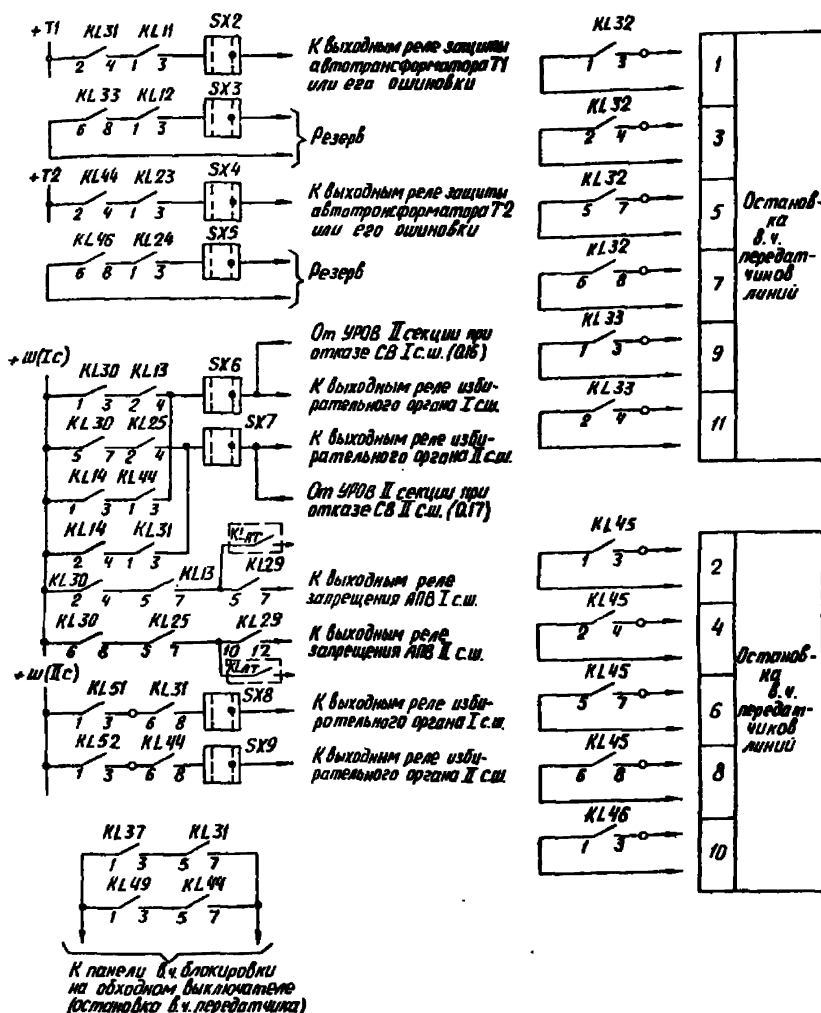 +T1 KL31 KL11 SX2
2 4 1 3
К выходным реле защиты
автотрансформатора Т1
или его ошиновки
KL33 KL12 SX3
6 8 1 3
Резерв
+T2 KL44 KL23 SX4
2 4 1 3
К выходным реле защиты
автотрансформатора Т2
или его ошиновки
KL46 KL24 SX5
6 8 1 3
Резерв
От УРОВ II секции при
отказе СВ I с.ш. (0.16)
+Ш(Iс) KL30 KL13 SX6
1 3 2 4
К выходным реле изби-
рательного органа I с.ш.
KL30 KL25 SX7
5 7 2 4
К выходным реле изби-
рательного органа II с.ш.
KL14 KL44
1 3 1 3
От УРОВ II секции при
отказе СВ II с.ш. (0.17)
KL14 KL31
2 4 1 3
KLлт
KL30 KL13 KL29
2 4 5 7 5 7
К выходным реле
запрещения АПВ I с.ш.
KL30 KL25 KL29
6 8 5 7 10 12
К выходным реле
запрещения АПВ II с.ш.
KLлт
+Ш(IIс)
KL51 KL31 SX8
1 3 6 8
К выходным реле изби-
рательного органа I с.ш.
KL52 KL44 SX9
1 3 6 8
К выходным реле изби-
рательного органа II с.ш.
KL37 KL31
1 3 5 7
KL49 KL44
1 3 5 7
К панели в.ч. блокировки
на обходном выключателе
(остановка в.ч. передатчика)
KL32
1 3 1
KL32
2 4 3
KL32
5 7 5
KL32
6 8 7
KL33
1 3 9
KL33
2 4 11
Останов-
ка
в.ч.
передат-
чиков
линий
KL45
1 3 2
KL45
2 4 4
KL45
5 7 6
KL45
6 8 8
KL46
1 3 10
Останов-
ка
в.ч.
передат-
чиков
линий